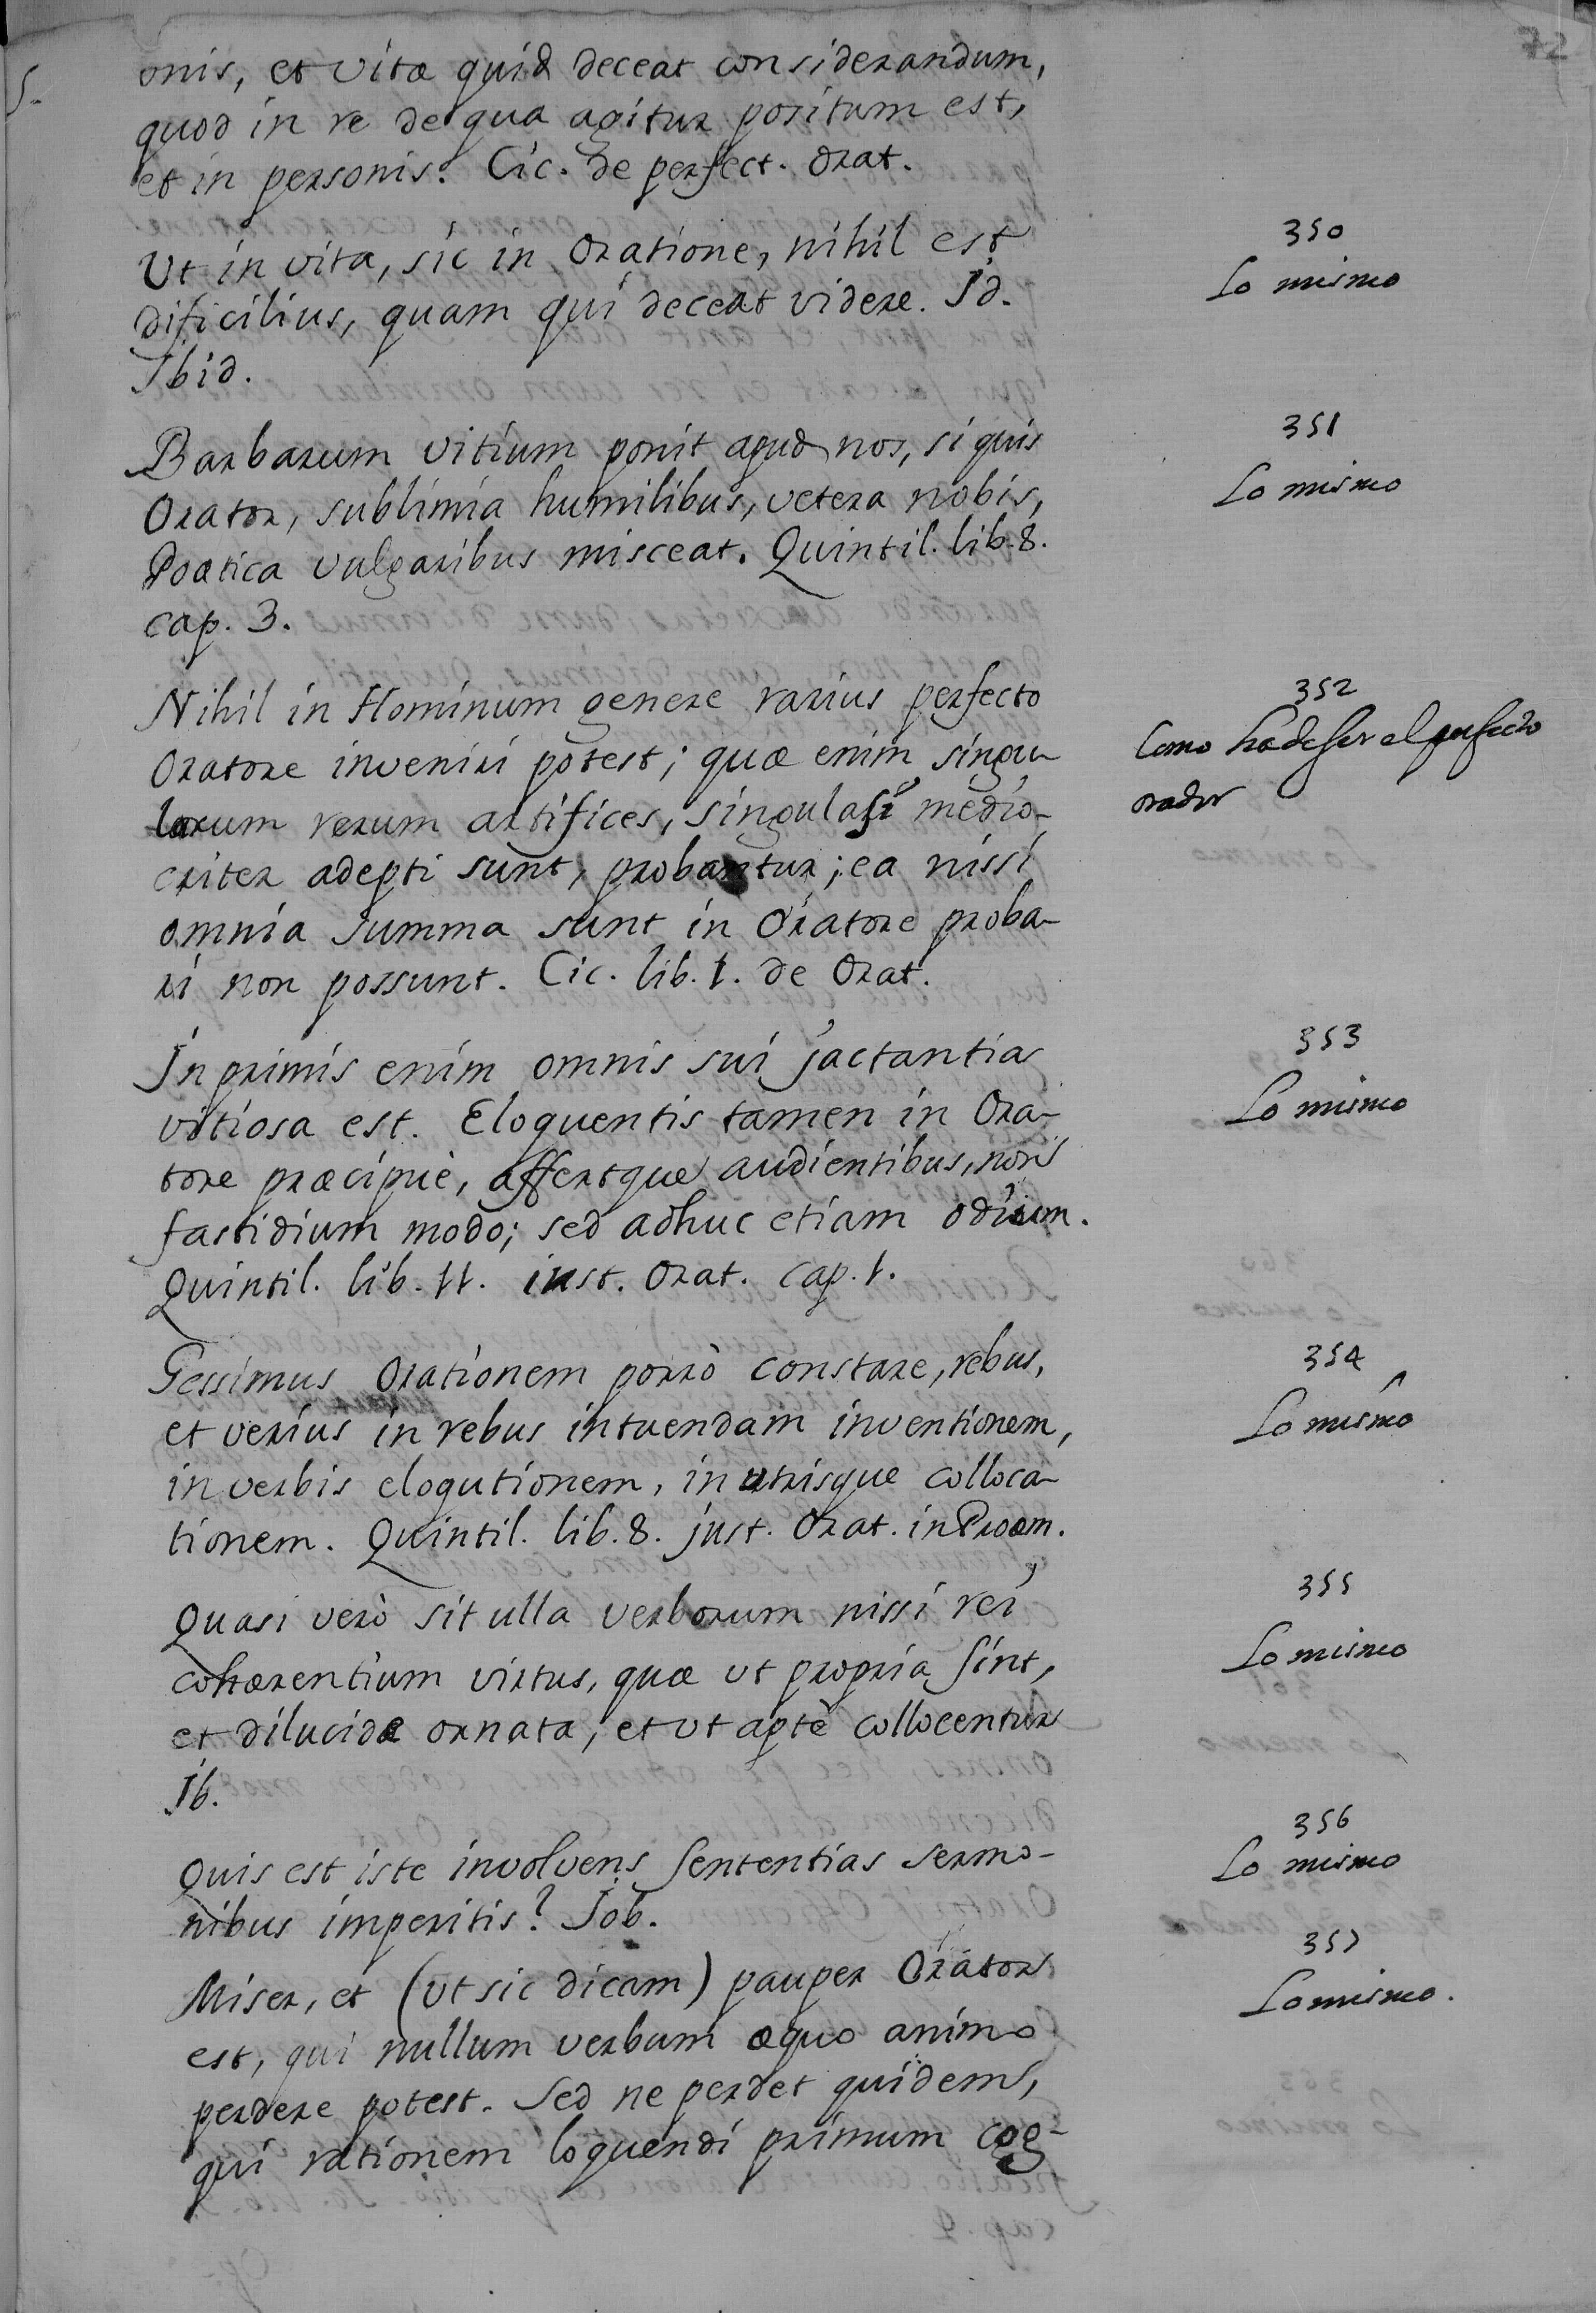 72
onis, et vitæ quid deceat considerandum,
quod in re de qua agitur positum est,
et in personis. Cic. de perfect. Orat.
350
Lo mismo
Ut in vita, sic in Oratione, nihil est
dificilius, quam qui deceat videre. Id.
Ibid.
351
Lo mismo
Barbarum vitium ponit apud nos, si quis
Orator, sublimia humilibus, vetera nobis,
Poætica vulgaribus misceat. Quintil. lib. 8.
cap. 3.
352
Como ha de ser el perfecto
orador
Nihil in Hominum genere rarius perfecto
Oratore inveniri potest; quæ enim singu-
larum rerum artifices, singula si medio-
criter adepti sunt, probantur; ea nissi
omnia summa sunt in Oratore proba-
ri non possunt. Cic. lib. 1. de Orat.
353
Lo mismo
In primis enim omnis sui jactantia
vitiosa est. Eloquentis tamen in Ora-
tore præcipuè, affertque audientibus, non
fastidium modo; sed adhuc etiam odium.
Quintil. lib. 11. inst. Orat. cap. 1.
354
Lo mismo
Gessimus Orationem porrò constare, rebus,
et verius in rebus intuendam inventionem,
in verbis eloqutionem, in utrisque colloca-
tionem. Quintil. lib. 8. just. Orat. in Proæm.
355
Lo mismo
Quasi verò sit ulla verborum nissi rei
cohærentium virtus, quæ ut propria sint,
et dilucidæ ornata, et ut aptè collocentur
Ib.
356
Lo mismo
Quis est iste involvens sententias sermo-
nibus imperitis? Job.
357
Lo mismo.
Miser, et (ut sic dicam) pauper Orator
est, qui nullum verbum æquo animo
perdere potest. Sed ne perdet quidem,
qui rationem loquendi primum cog-